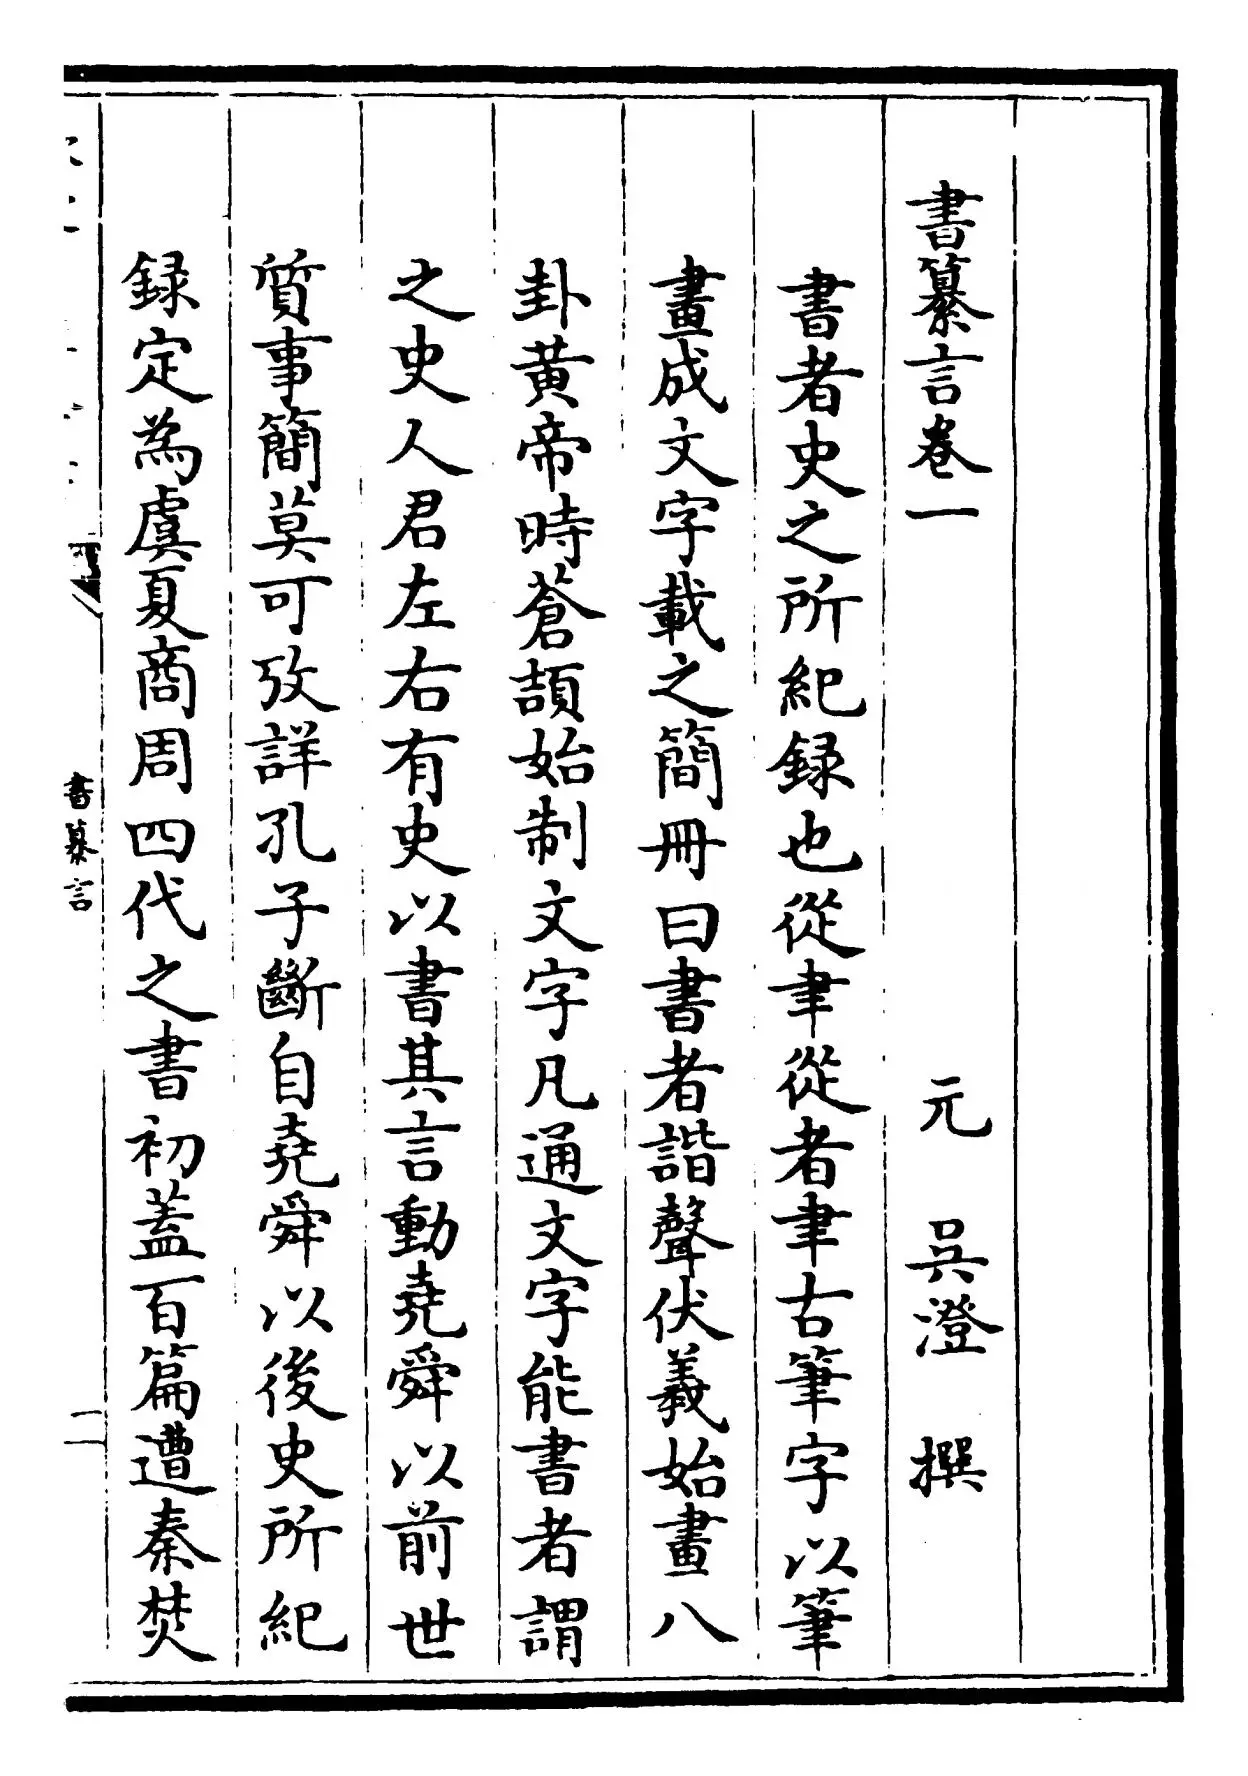 書纂言卷一
元 吳澄 撰
書者史之所紀録也從聿從者聿古筆字以筆
畫成文字載之簡冊曰書者諧聲伏羲始畫八
卦黄帝時蒼頡始制文字凡通文字能書者謂
之史人君左右有史以書其言動堯舜以前世
質事簡莫可攷詳孔子斷自堯舜以後史所紀
録定為虞夏商周四代之書初蓋百篇遭秦焚
書纂言